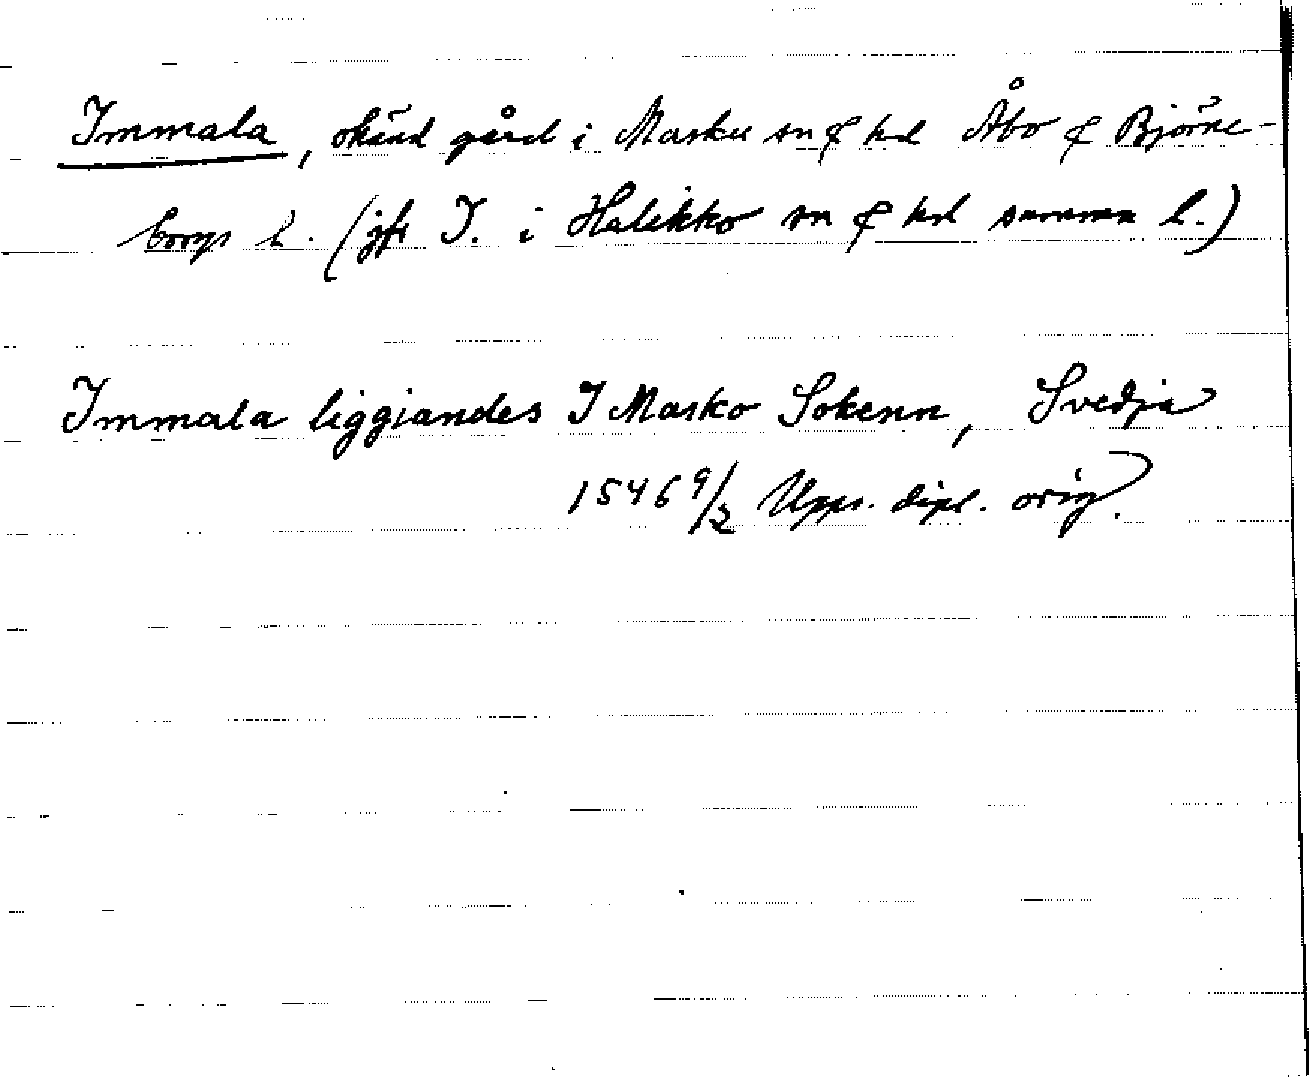 Immala, okänd gård i Masku sn & hd Åbo & Björne-
borgs l. (jfr I. i Halikko sn & hd samma l.)
Immala liggiandes I Masko Sokenn, Svedja
1546 9/2 Upps. dipl. orig.